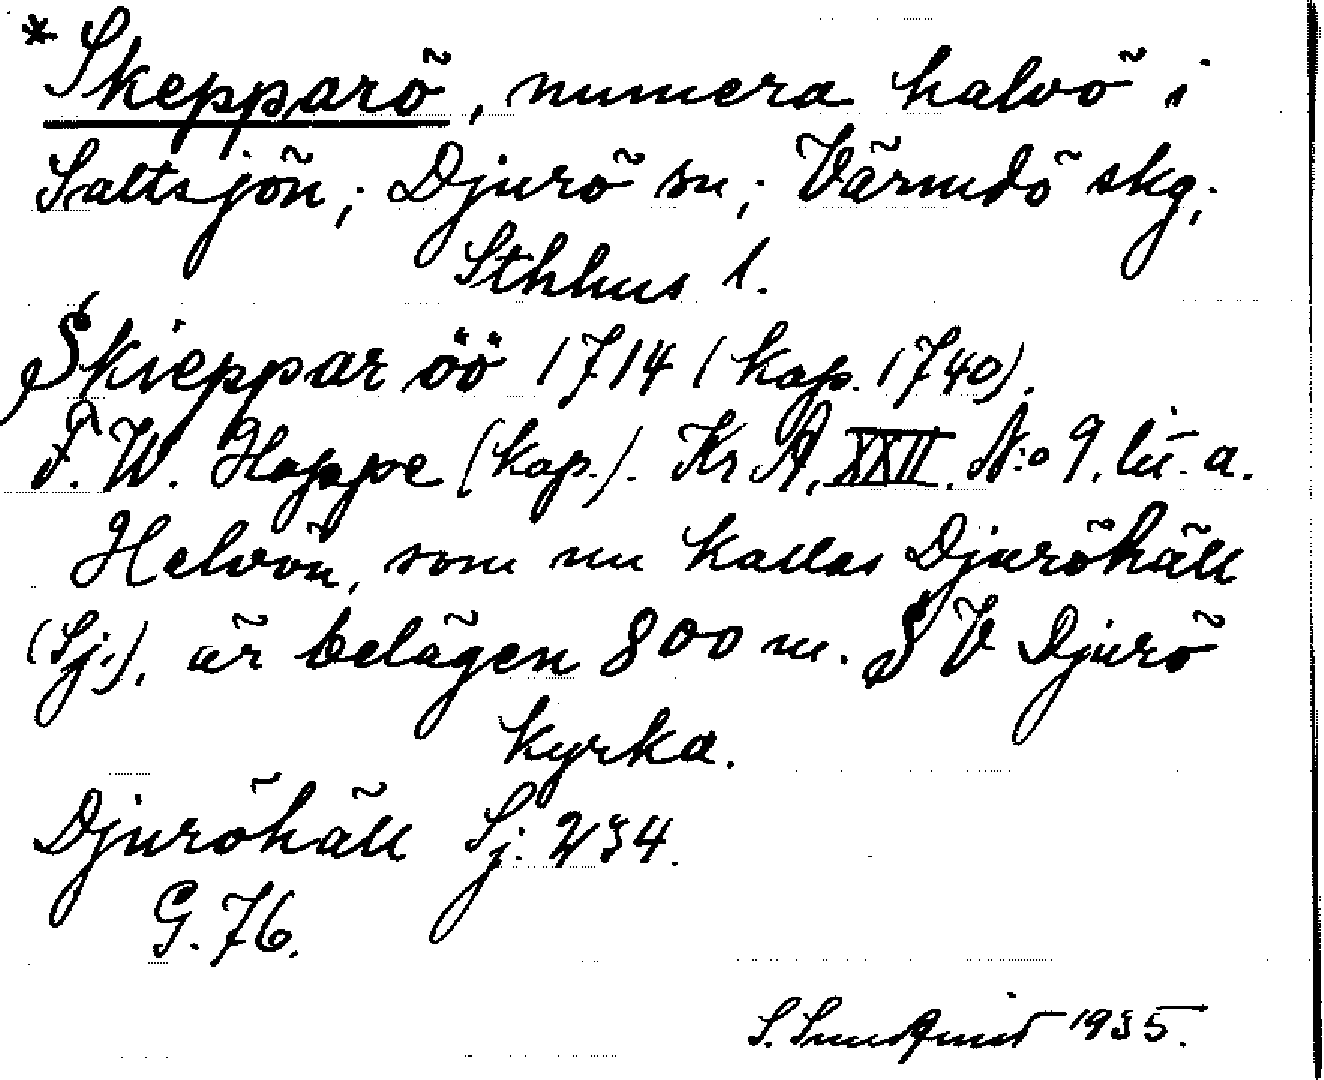 * Skepparö, numera halvö i
Saltsjön; Djurö sn; Värmdö skg;
Sthlms l.
Skieppar öö 1714 (kop. 1740).
F. W. Hoppe (kop.). Kr A, XXII. N:o 9. lit. a.
Halvön, som nu kallas Djuröhäll
(Sj.), är belägen 800 m. SV Djurö
kyrka.
Djuröhäll Sj. 234.
G. 76.
S. Sundqvist 1935.